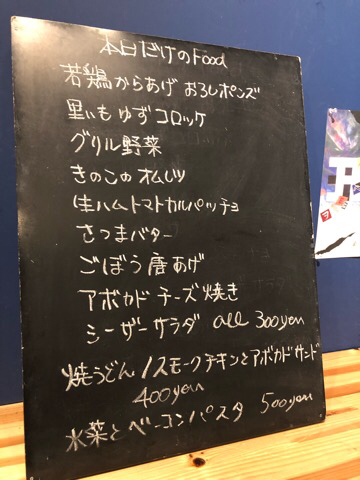 本日だけのFood
若鶏からあげ おろしポンズ
里いもゆずコロッケ
グリル野菜
きのこのオムレツ
生ハムトマトカルパッチョ
さつまバター
ごぼう唐あげ
アボカドチーズ焼き
シーザーサラダ all 300yen
焼うどん/スモークチキンとアボカドサンド
400yen
水菜とベーコンパスタ 500yen